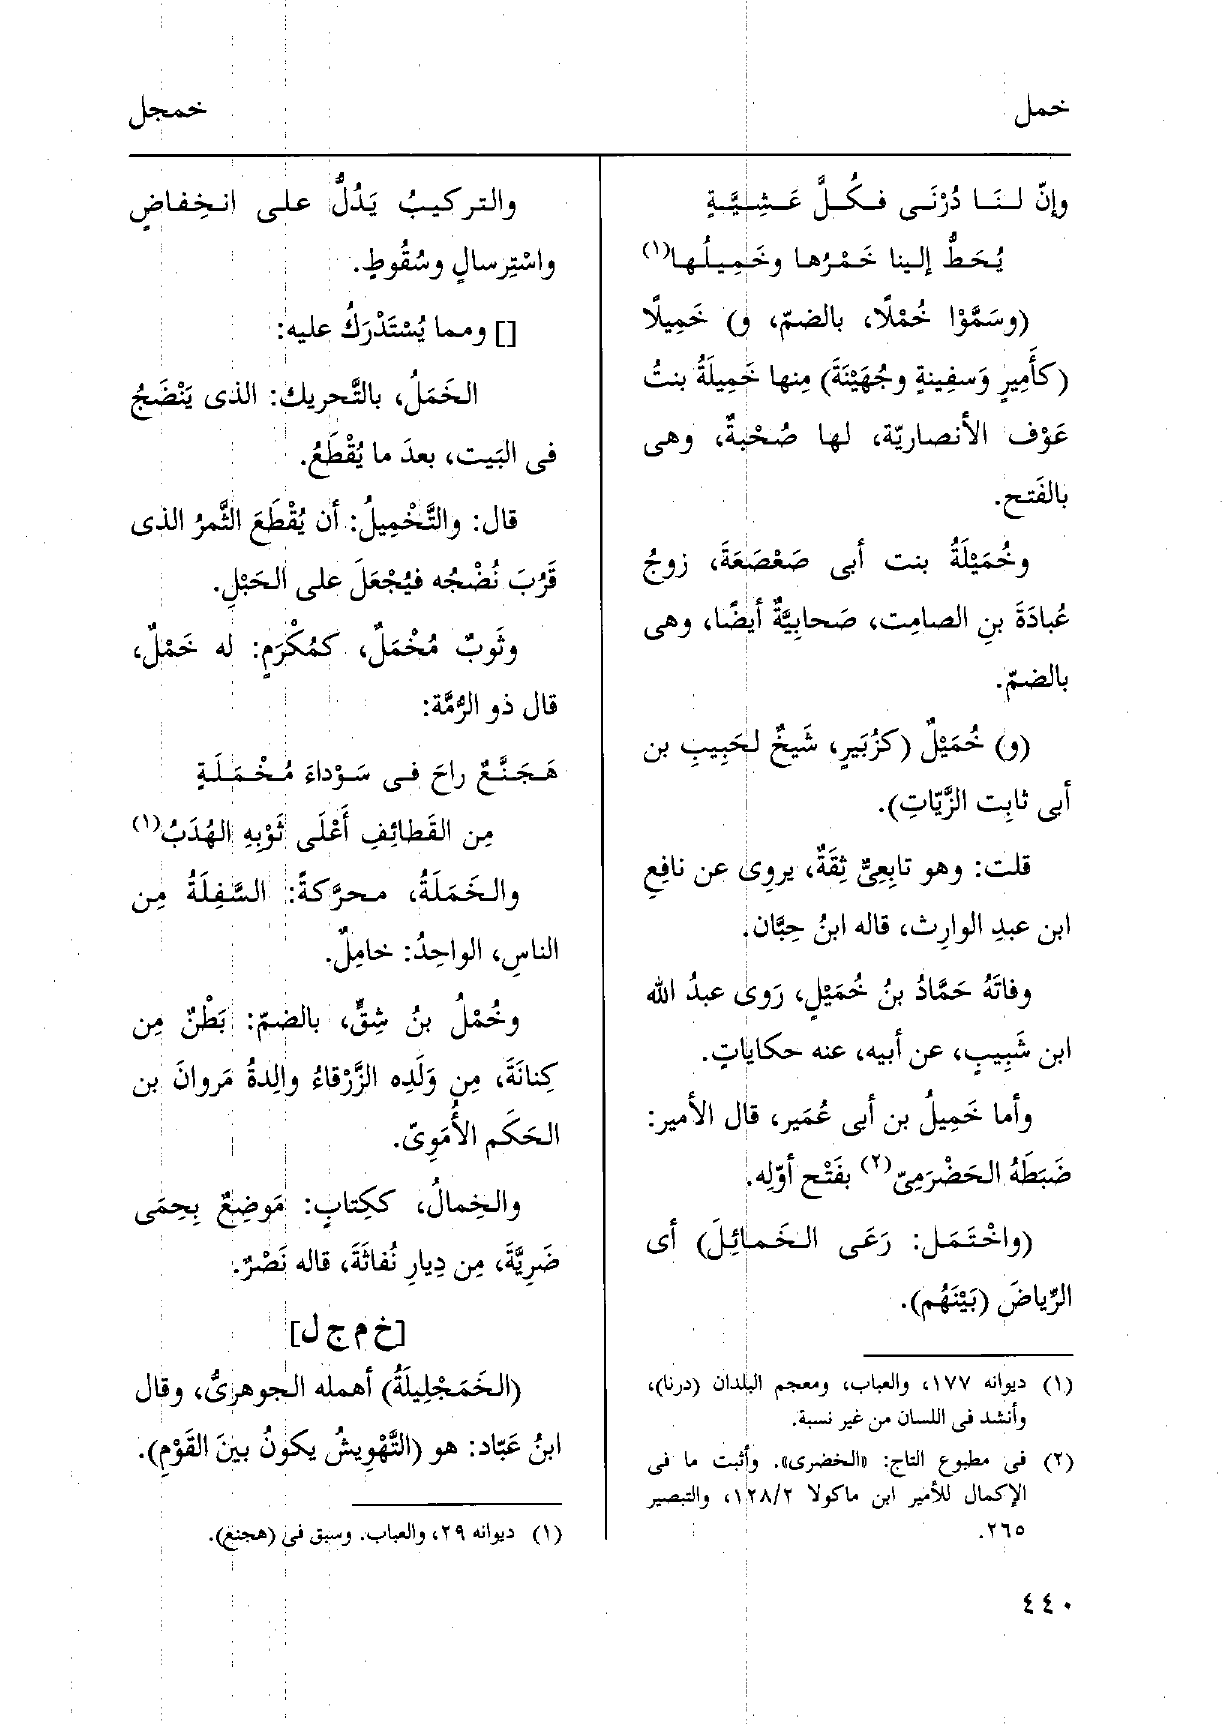 خمل
خمجل
وإنّ لـنَـا دُرْنَـى فـكُـلَّ عَـشِـيَّـةٍ
يُحَطُّ إلينا خَمْرُها وخَمِيلُها(١)
(وسَمَّوْا خُمْلًا، بالضمّ، و) خَمِيلًا
(كأَمِيرٍ وَسفِينةٍ وجُهَيْنَةَ) مِنها خَمِيلَةُ بنتُ
عَوْف الأنصاريّة، لها صُحْبةٌ، وهى
بالفَتح.
وخُمَيْلَةُ بنت أبى صَعْصَعَةَ، زوجُ
عُبادَةَ بنِ الصامِت، صَحابِيَّةٌ أيضًا، وهى
بالضمّ.
(و) خُمَيْلٌ (كزُبَيرٍ، شَيخٌ لحَبِيبِ بن
أبى ثابِت الزَّيّاتِ).
قلت: وهو تابِعِىٌّ ثِقَةٌ، يروِى عن نافِعِ
ابن عبدِ الوارِث، قاله ابنُ حِبَّان.
وفاتَهُ حَمَّادُ بنُ خُمَيْلٍ، رَوى عبدُ الله
ابن شَبِيبٍ، عن أبيه، عنه حكاياتٍ.
وأما خَمِيلُ بن أبى عُمَير، قال الأمير:
ضَبَطَهُ الحَضْرَمِىّ(٢) بفَتْح أوّلِه.
(واخْتَمَل: رَعَى الخَمائِلَ) أى
الرِّياضَ (بَيْنَهُم).
(١) ديوانه ١٧٧، والعباب، ومعجم البلدان (درنا)،
وأنشد فى اللسان من غير نسبة.
(٢) فى مطبوع التاج: «الخضرى». وأثبت ما فى
الإكمال للأمير ابن ماكولا ١٢٨/٢، والتبصير
٢٦٥.
والتركيبُ يَدُلُّ على انخِفاضٍ
واسْتِرسالٍ وسُقُوطٍ.
[] ومما يُسْتَدْرَكُ عليه:
الخَمَلُ، بالتَّحريك: الذى يَنْضَجُ
فى البَيت، بعدَ ما يُقْطَعُ.
قال: والتَّخْمِيلُ: أن يُقْطَعَ الثَّمرُ الذى
قَرُبَ نُضْجُه فيُجْعَلَ على الحَبْلِ.
وثَوبٌ مُخْمَلٌ، كمُكْرَمٍ: له خَمْلٌ،
قال ذو الرُّمَّة:
هَـجَـنَّـعٌ راحَ فـى سَـوْداءَ مُـخْـمَـلَـةٍ
مِن القَطائِفِ أَعْلَى ثَوْبِهِ الهُدَبُ(١)
والخَمَلَةُ، محرَّكةً: السَّفِلَةُ مِن
الناسِ، الواحِدُ: خامِلٌ.
وخُمْلُ بنُ شِقٍّ، بالضمّ: بَطْنٌ مِن
كِنانَةَ، مِن وَلَدِه الزَّرْقاءُ والِدةُ مَروانَ بن
الحَكَم الأُمَوِىّ.
والخِمالُ، ككِتابٍ: مَوضِعٌ بِحِمَى
ضَرِيَّةَ، مِن دِيارِ نُفاثَةَ، قاله نَصْرٌ.
[خ م ج ل]
(الخَمَجْلِيلَةُ) أهمله الجوهرىُّ، وقال
ابنُ عَبّاد: هو (التَّهْوِيشُ يكونُ بينَ القَوْمِ).
(١) ديوانه ٢٩، والعباب. وسبق فى (هجنع).
٤٤٠